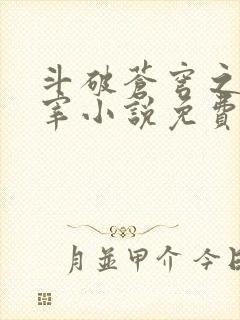 斗破蒼穹之
宰小說免費
月並甲介 今日